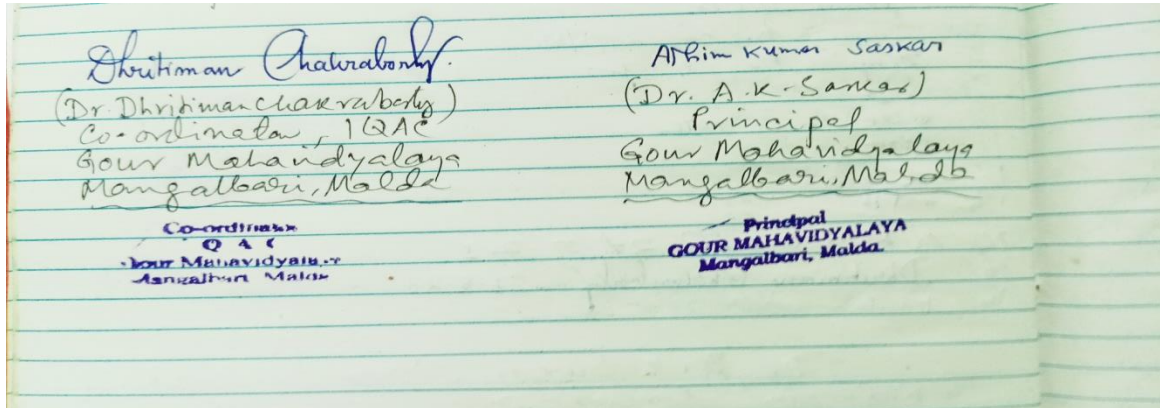 Dhritiman Chakraborty.
(Dr. Dhritiman Chakraborty)
Co-ordinator, IQAC
Gour Mahavidyalaya
Mangalbari, Malda
Co-ordinator
Q A C
Gour Mahavidyalaya
Mangalbari Malda
Ashim Kumar Sarkar
(Dr. A.K. Sarkar)
Principal
Gour Mahavidyalaya
Mangalbari, Malda
Principal
GOUR MAHAVIDYALAYA
Mangalbari, Malda.